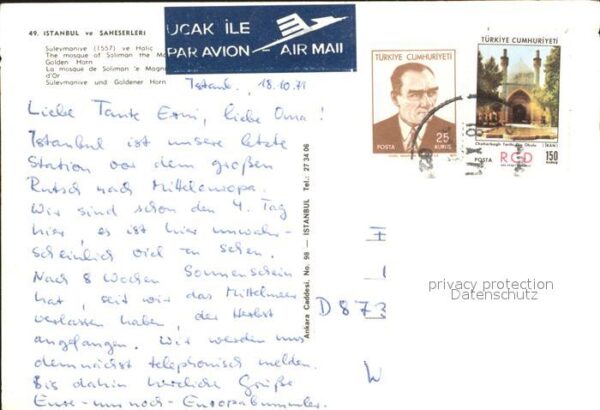 49. ISTANBUL ve SAHESERLERİ
Süleymaniye (1557) ve Haliç
The mosque of Soliman the Ma
Golden Horn
La mosque de Soliman le Magn
d'Or
Süleymaniye und Goldener Horn
UÇAK İLE
PAR AVION - AIR MAIL
TÜRKİYE CUMHURİYETİ
25
KURUŞ
POSTA
TÜRKİYE CUMHURİYETİ
(İRAN)
POSTA RCD 150
KURUŞ
Istanbul, 18.10.71
Liebe Tante Erni, liebe Oma!
Istanbul ist unsere letzte
Station vor dem großen
Rutsch nach Mitteleuropa.
Wir sind schon den 4. Tag
hier, es ist hier unwahr-
scheinlich viel zu sehen.
Nach 8 Wochen Sonnenschein
hat, seit wir das Mittelmeer
verlassen haben, der Herbst
angefangen. Wir werden uns
demnächst telephonisch melden.
Bis dahin herzliche Grüße
Eure-nun noch-Europabummler.
Ankara Caddesi, No. 98 — ISTANBUL Tel.: 27 34 06
D 873
privacy protection
Datenschutz